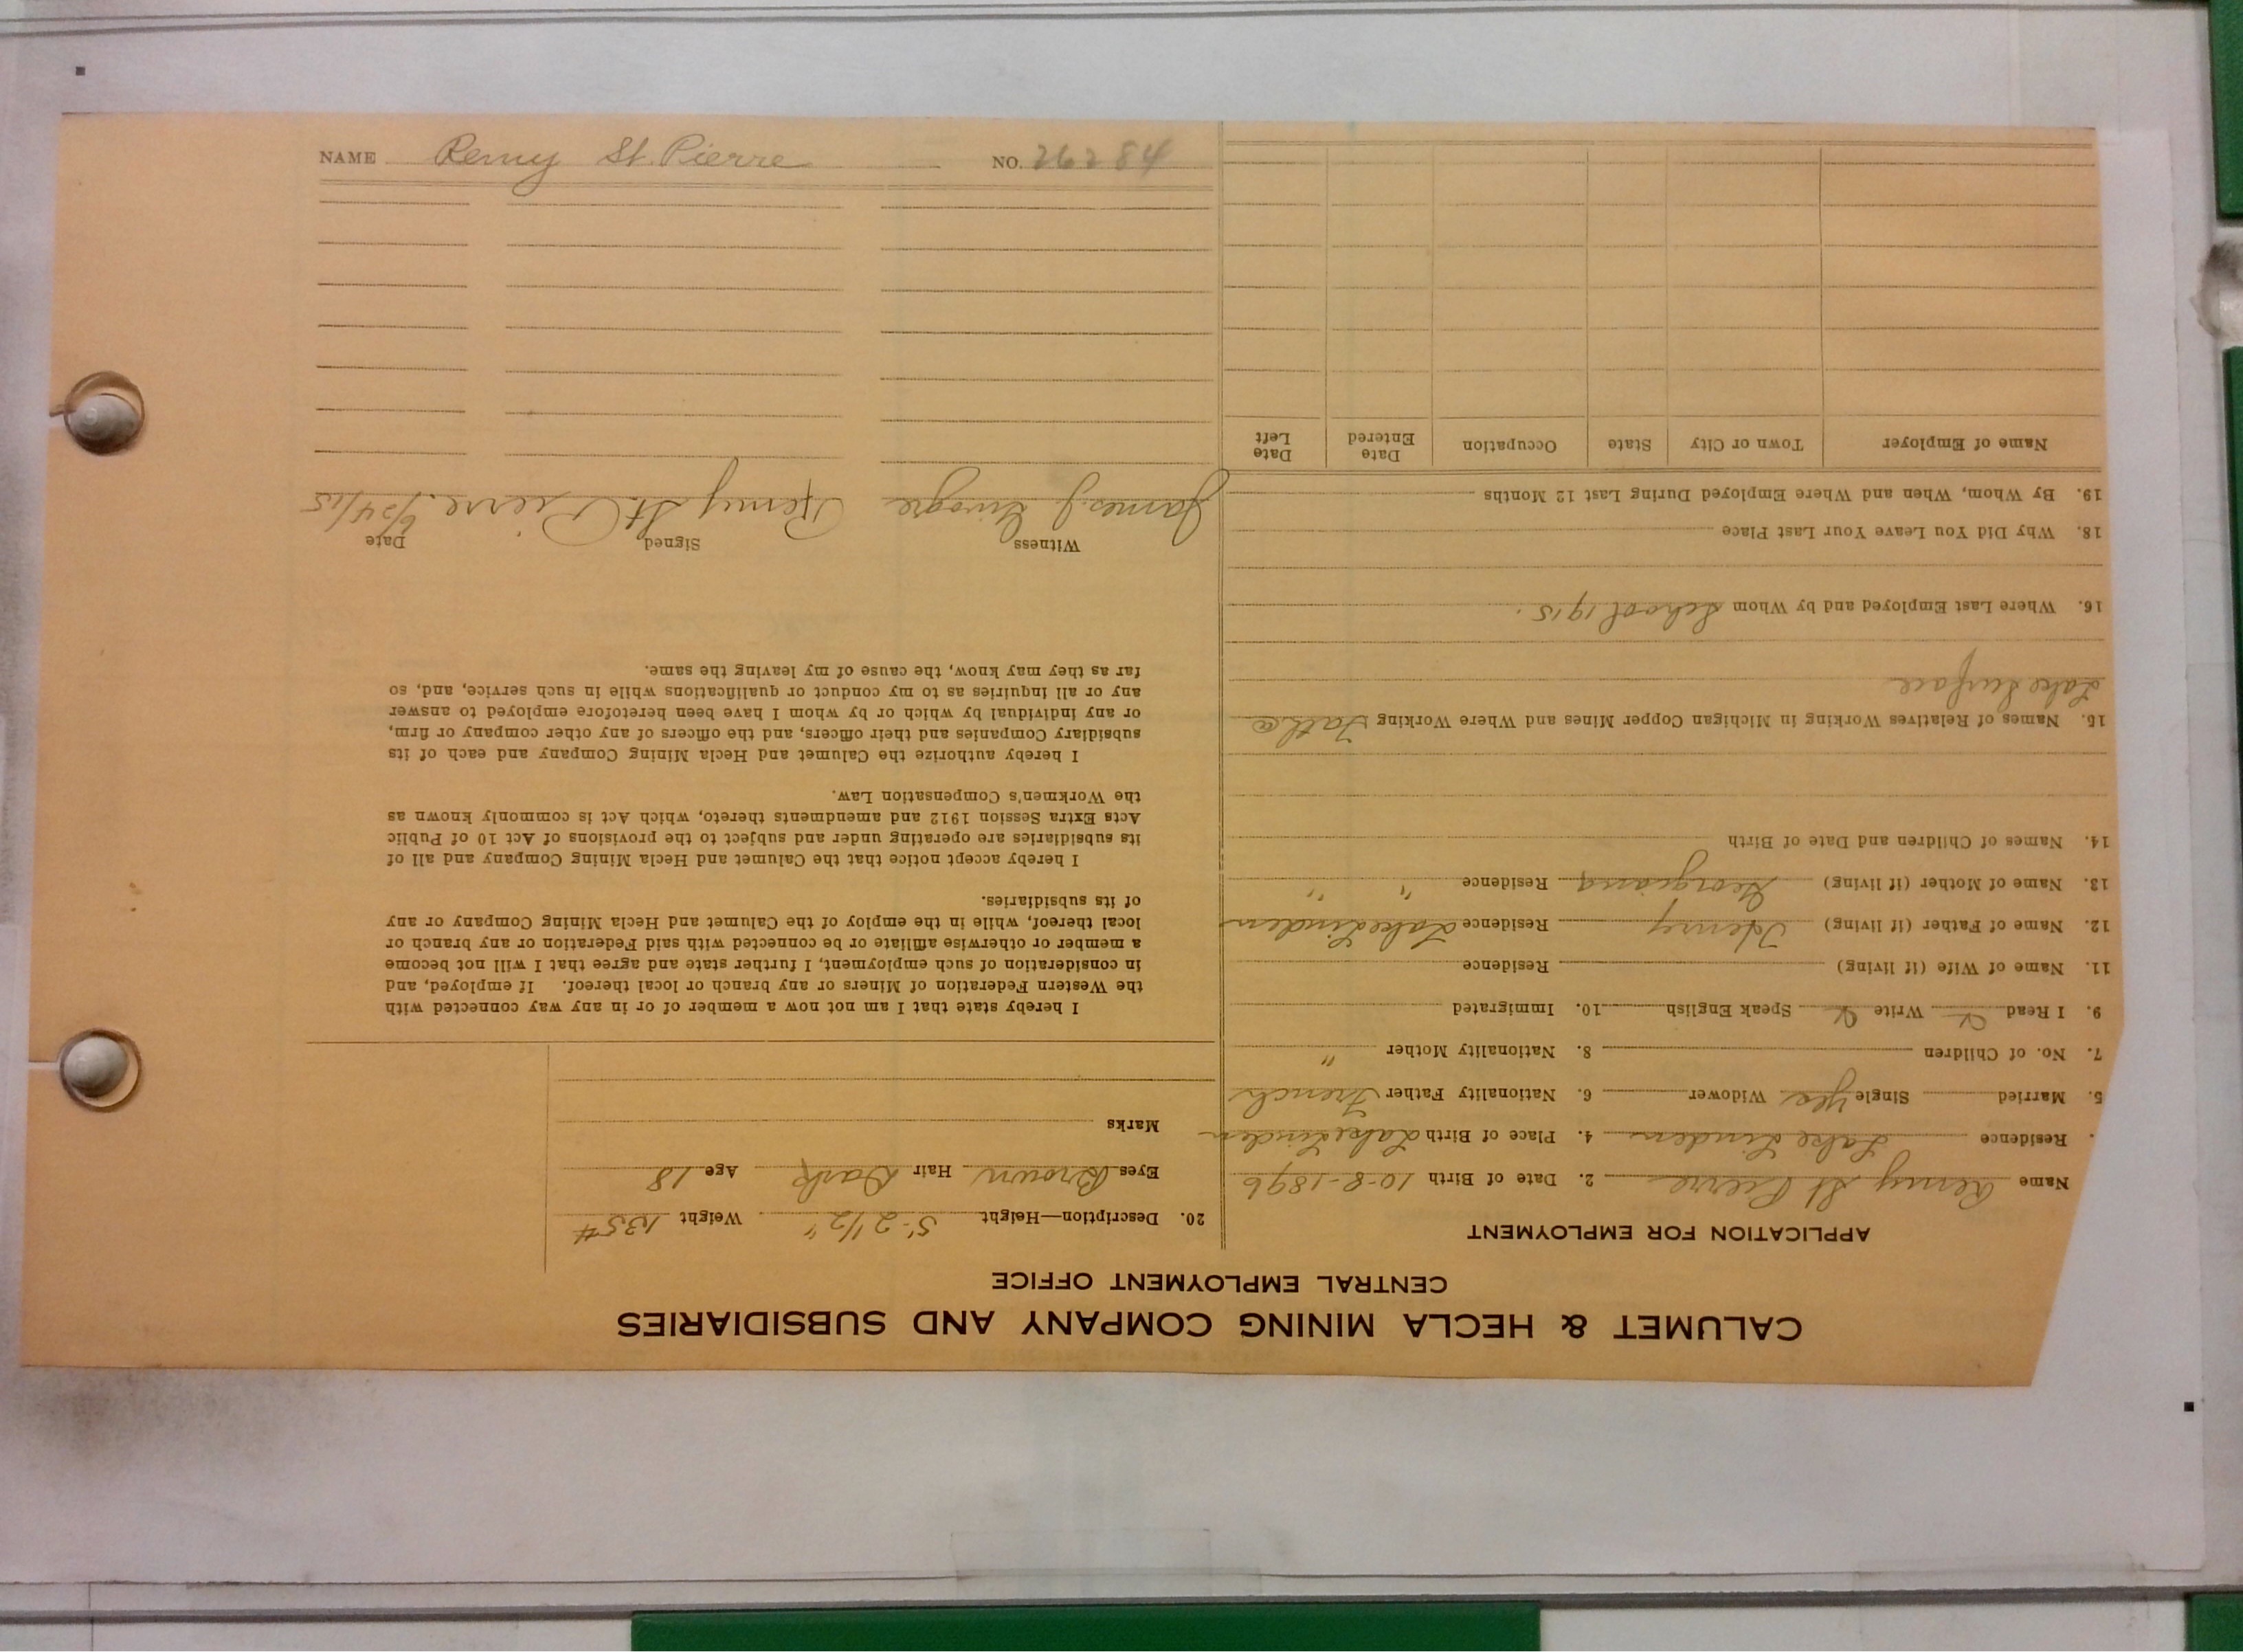 CALUMET & HECLA MINING COMPANY AND SUBSIDIARIES
CENTRAL EMPLOYMENT OFFICE
APPLICATION FOR EMPLOYMENT
Name Remy St Pierre 2. Date of Birth 10-8-1896
. Residence Lake Linden 4. Place of Birth Lake Linden
5. Married Single Yes Widower 6. Nationality Father French
7. No. of Children 8. Nationality Mother "
9. I Read Write Speak English 10. Immigrated
11. Name of Wife (if living) Residence
12. Name of Father (if living) Henry Residence Lake Linden
13. Name of Mother (if living) Georgiana Residence " "
14. Names of Children and Date of Birth
15. Names of Relatives Working in Michigan Copper Mines and Where Working Father
Lake Surface
16. Where Last Employed and by Whom School 1915.
18. Why Did You Leave Your Last Place
19. By Whom, When and Where Employed During Last 12 Months
Name of Employer Town or City State Occupation Date Entered Date Left
20. Description—Height 5'-2 1/2" Weight 135#
Eyes Brown Hair Dark Age 18
Marks
I hereby state that I am not now a member of or in any way connected with
the Western Federation of Miners or any branch or local thereof. If employed, and
in consideration of such employment, I further state and agree that I will not become
a member or otherwise affiliate or be connected with said Federation or any branch or
local thereof, while in the employ of the Calumet and Hecla Mining Company or any
of its subsidiaries.
I hereby accept notice that the Calumet and Hecla Mining Company and all of
its subsidiaries are operating under and subject to the provisions of Act 10 of Public
Acts Extra Session 1912 and amendments thereto, which Act is commonly known as
the Workmen's Compensation Law.
I hereby authorize the Calumet and Hecla Mining Company and each of its
subsidiary Companies and their officers, and the officers of any other company or firm,
or any individual by which or by whom I have been heretofore employed to answer
any or all inquiries as to my conduct or qualifications while in such service, and, so
far as they may know, the cause of my leaving the same.
Witness Signed Date
James J. Remy St. Pierre. 6/24/15
NAME Remy St. Pierre NO. 26284